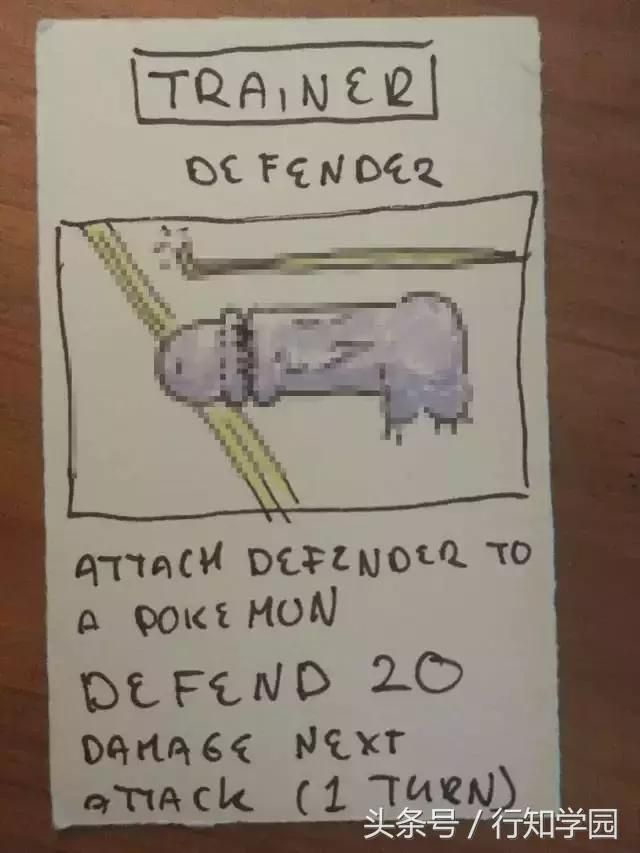 TRAINER
DEFENDER
ATTACH DEFENDER TO
A POKEMON
DEFEND 20
DAMAGE NEXT
ATTACK (1 TURN)
头条号／行知学园